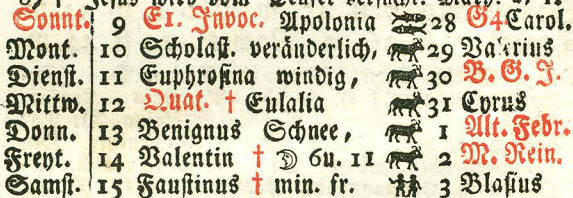 Sonnt. 9 E1. Invoc. Apolonia 28 G4Carol.
Mont. 10 Scholast. veränderlich, 29 Valerius
Dienst. 11 Euphrosina windig, 30 B. G. J.
Mittw. 12 Quat. † Eulalia 31 Cyrus
Donn. 13 Benignus Schnee, 1 Alt. Febr.
Freyt. 14 Valentin † ☽ 6u. 11 2 M. Rein.
Samst. 15 Faustinus † min. fr. 3 Blasius